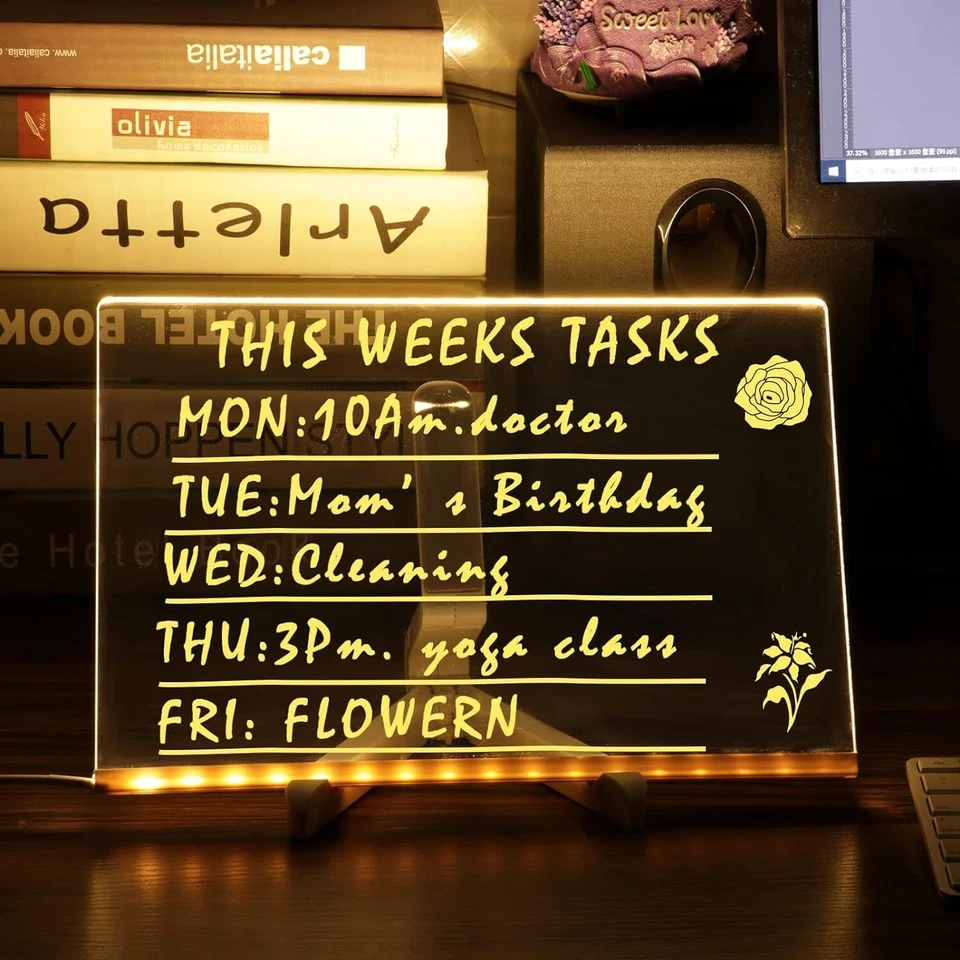 www.caliaitalia.
caliaitalia
Sweet Love
olivia
home decoration
Arletta
37.32%
THE HOTEL BOOK
THIS WEEKS TASKS
MON:10Am.doctor
LLY HOPPEN STYL
TUE:Mom's Birthday
WED:Cleaning
e Hotel Book
THU:3Pm. yoga class
FRI: FLOWERN